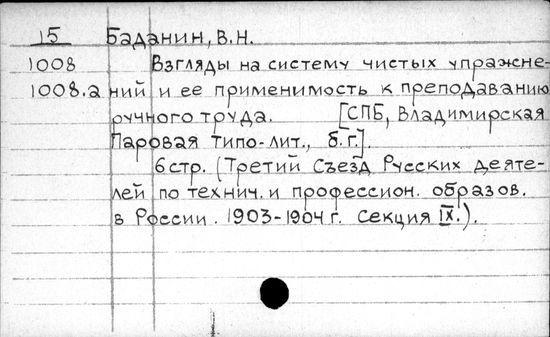 15 Баданин, В.Н.
1008 Взгляды на систему чистых упражне-
1008.а ний и ее применимость к преподаванию
ручного труда. [СПБ, Владимирская
Паровая типо-лит., б.г.].
6 стр. (Третий Съезд Русских деяте-
лей по технич. и профессион. образов.
в России. 1903-1904 г. Секция IX.).